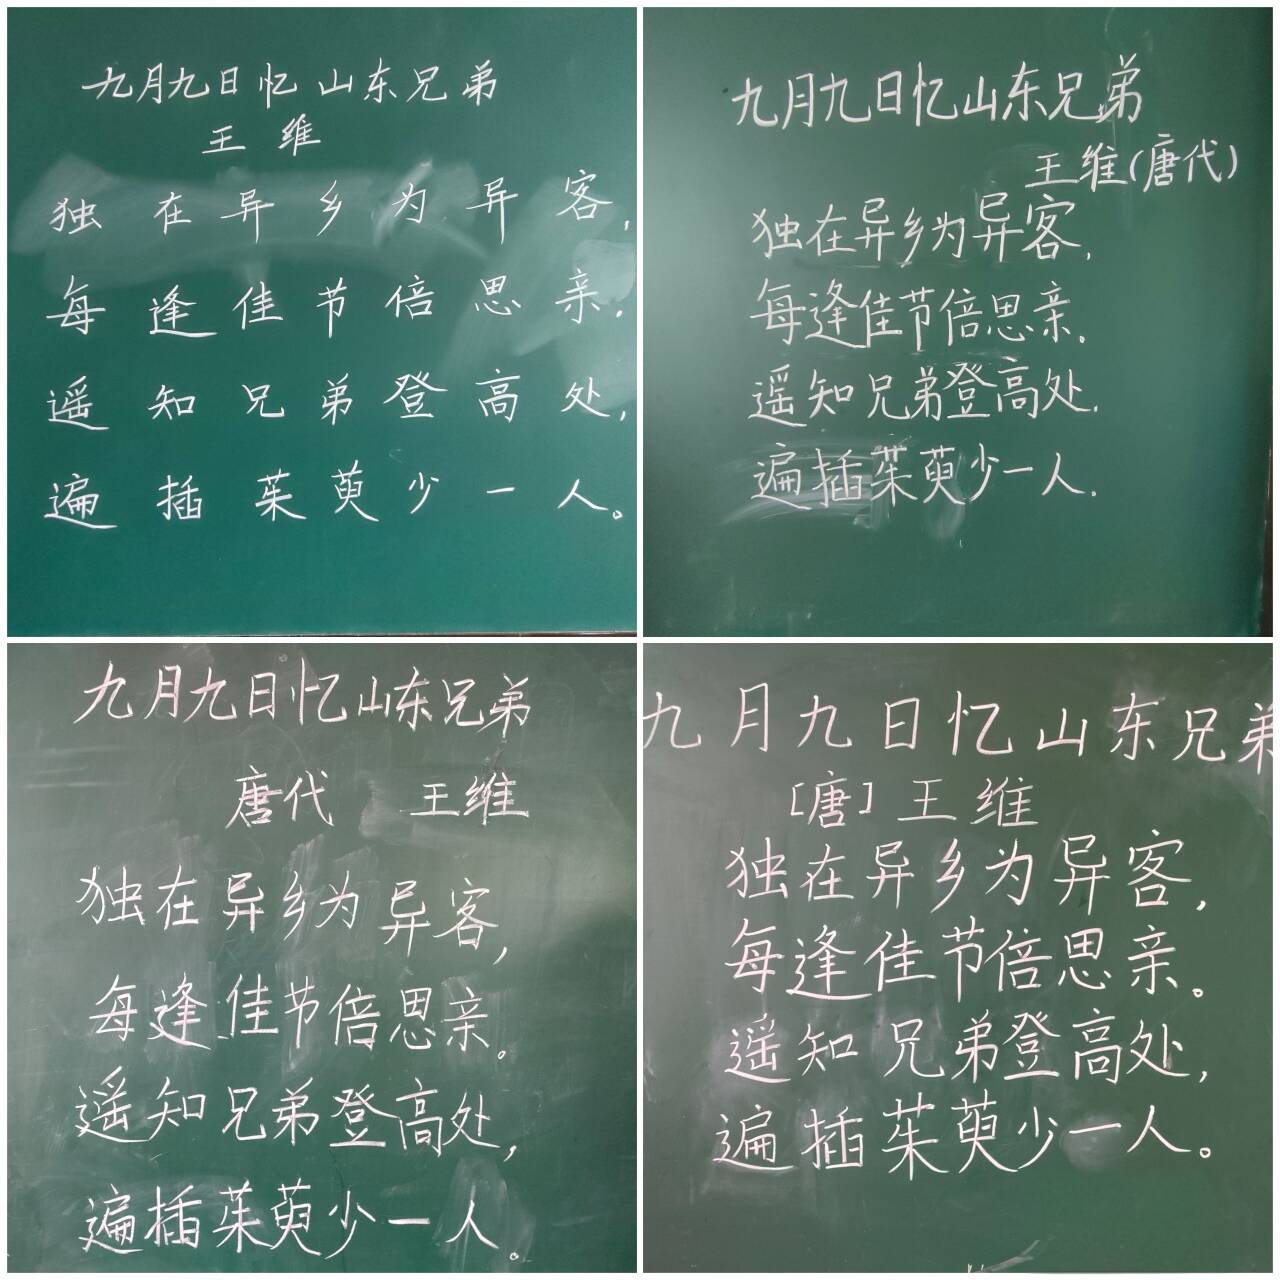 九月九日忆山东兄弟
王维
独在异乡为异客，
每逢佳节倍思亲．
遥知兄弟登高处，
遍插茱萸少一人。
九月九日忆山东兄弟
王维(唐代)
独在异乡为异客．
每逢佳节倍思亲．
遥知兄弟登高处．
遍插茱萸少一人．
九月九日忆山东兄弟
唐代 王维
独在异乡为异客，
每逢佳节倍思亲。
遥知兄弟登高处，
遍插茱萸少一人。
九月九日忆山东兄弟
[唐]王维
独在异乡为异客，
每逢佳节倍思亲。
遥知兄弟登高处，
遍插茱萸少一人。